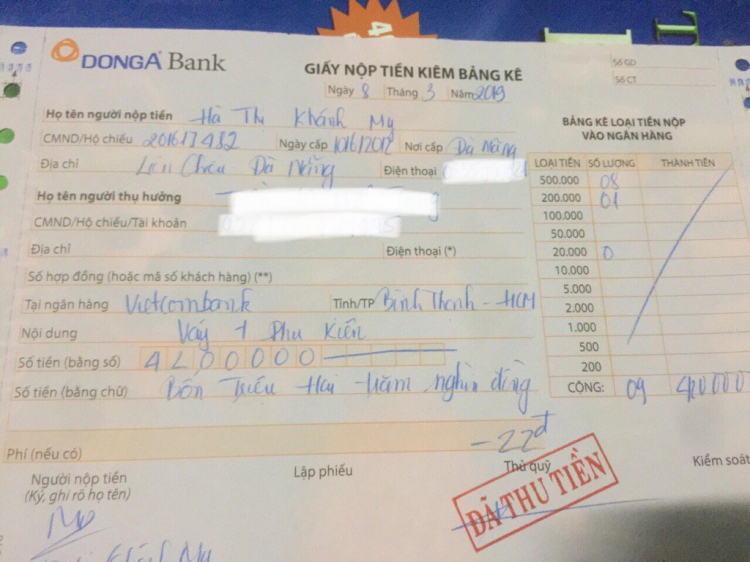 DONGA Bank
GIẤY NỘP TIỀN KIÊM BẢNG KÊ
Số GD
Số CT
Ngày 8 Tháng 3 Năm 2019
Họ tên người nộp tiền Hà Thị Khánh My
CMND/Hộ chiếu 201617482 Ngày cấp Nơi cấp Đà Nẵng
Địa chỉ Liên Chiểu Đà Nẵng Điện thoại
Họ tên người thụ hưởng
CMND/Hộ chiếu/Tài khoản
Địa chỉ Điện thoại (*)
Số hợp đồng (hoặc mã số khách hàng) (**)
Tại ngân hàng Vietcombank Tỉnh/TP Bình Thạnh - HCM
Nội dung Váy + Phụ Kiện
Số tiền (bằng số) 4200000
Số tiền (bằng chữ) Bốn Triệu Hai trăm nghìn đồng
Phí (nếu có) -22đ
Người nộp tiền Lập phiếu Thủ quỹ Kiểm soát
(Ký, ghi rõ họ tên)
ĐÃ THU TIỀN
My
BẢNG KÊ LOẠI TIỀN NỘP
VÀO NGÂN HÀNG
LOẠI TIỀN SỐ LƯỢNG THÀNH TIỀN
500.000 08
200.000 01
100.000
50.000
20.000 0
10.000
5.000
2.000
1.000
500
200
CỘNG: 09